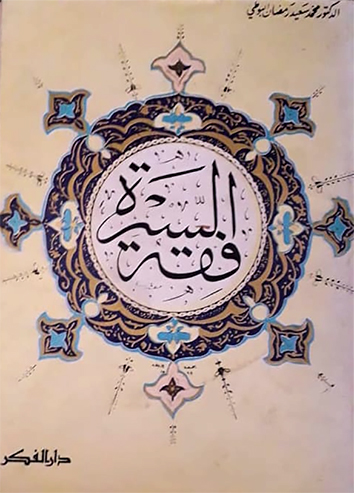 الدكتور محمد سعيد رمضان البوطي
فقه السيرة
دار الفكر